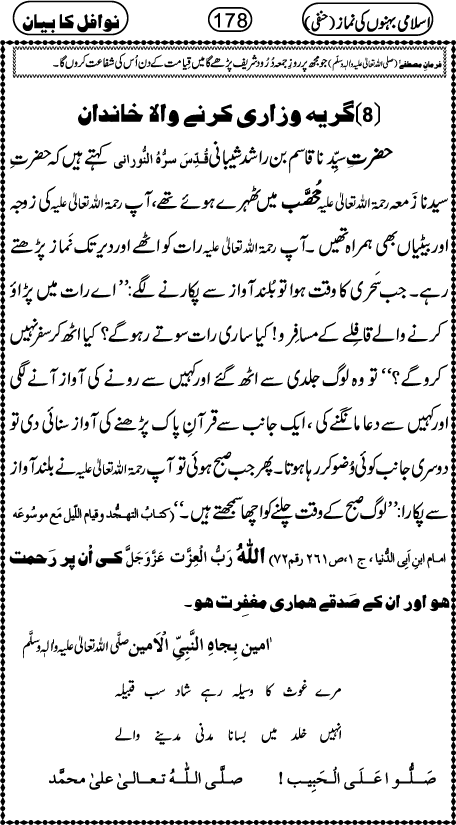 اسلامی بہنوں کی نماز (حنفی) 178 نوافل کا بیان
فرمانِ مصطفےٰ (صلی اللہ تعالیٰ علیہ والہٖ وسلم) جو مجھ پر روزِ جمعہ دُرُود شریف پڑھے گا میں قیامت کے دن اُس کی شفاعت کروں گا۔
(8) گریہ وزاری کرنے والا خاندان
حضرتِ سیِّدنا قاسم بن راشد شیبانی قُدِّسَ سِرُّہُ النُّورانی کہتے ہیں کہ حضرتِ
سیدنا زَمعہ رحمۃ اللہ تعالیٰ علیہ مُحَصَّب میں ٹھہرے ہوئے تھے، آپ رحمۃ اللہ تعالیٰ علیہ کی زوجہ
اور بیٹیاں بھی ہمراہ تھیں۔ آپ رحمۃ اللہ تعالیٰ علیہ رات کو اٹھے اور دیر تک نَماز پڑھتے
رہے۔ جب سَحَری کا وقت ہوا تو بُلند آواز سے پکارنے لگے: ’’اے رات میں پڑاؤ
کرنے والے قافِلے کے مسافِرو! کیا ساری رات سوتے رہو گے؟ کیا اٹھ کر سفر نہیں
کرو گے؟‘‘ تو وہ لوگ جلدی سے اٹھ گئے اور کہیں سے رونے کی آواز آنے لگی
اور کہیں سے دعا مانگنے کی، ایک جانب سے قرآنِ پاک پڑھنے کی آواز سنائی دی تو
دوسری جانب کوئی وُضو کر رہا ہوتا۔ پھر جب صبح ہوئی تو آپ رحمۃ اللہ تعالیٰ علیہ نے بلند آواز
سے پکارا: ’’لوگ صبح کے وقت چلنے کو اچھا سمجھتے ہیں۔‘‘ (کتابُ التھجُّد وقیام اللَّیل مَع موسُوعَہ
امام ابنِ اَبِی الدُّنیا، ج ۱، ص ۲۶۱ رقم ۷۲) اللہُ رَبُّ الْعِزَّت عَزَّوَجَلَّ کی اُن پر رَحمت
ھو اور ان کے صَدقے ھماری مغفِرت ھو۔
اٰمین بِجاہِ النَّبِیِّ الْاَمین صلَّی اللہ تعالیٰ علیہ والہٖ وسلَّم
مرے غوث کا وسیلہ رہے شاد سب قبیلہ
انہیں خلد میں بسانا مدنی مدینے والے
صَلُّوا عَلَی الْحَبِیب! صلَّی اللہُ تعالیٰ علیٰ محمَّد